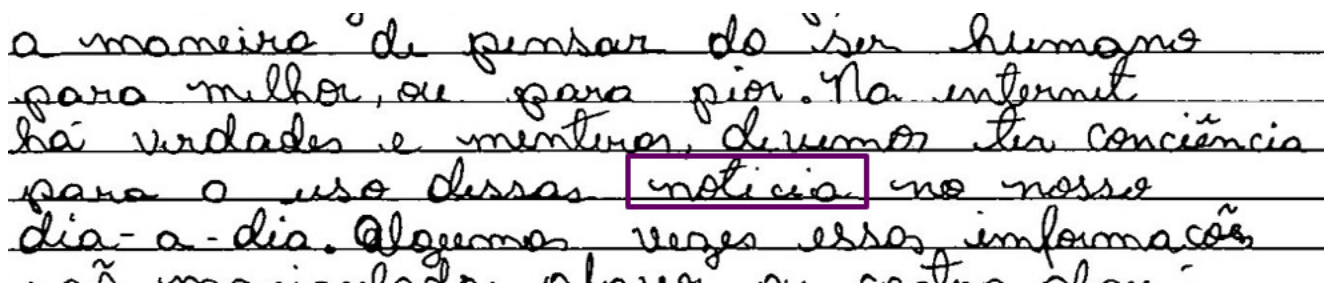 a maneira de pensar do ser humano
para milhor, ou para pior. Na internet
há verdades e mentiras, devemos ter conciência
para o uso dessas noticia no nosso
dia-a-dia. Algumas vezes essas informações
são manipuladas ou contra